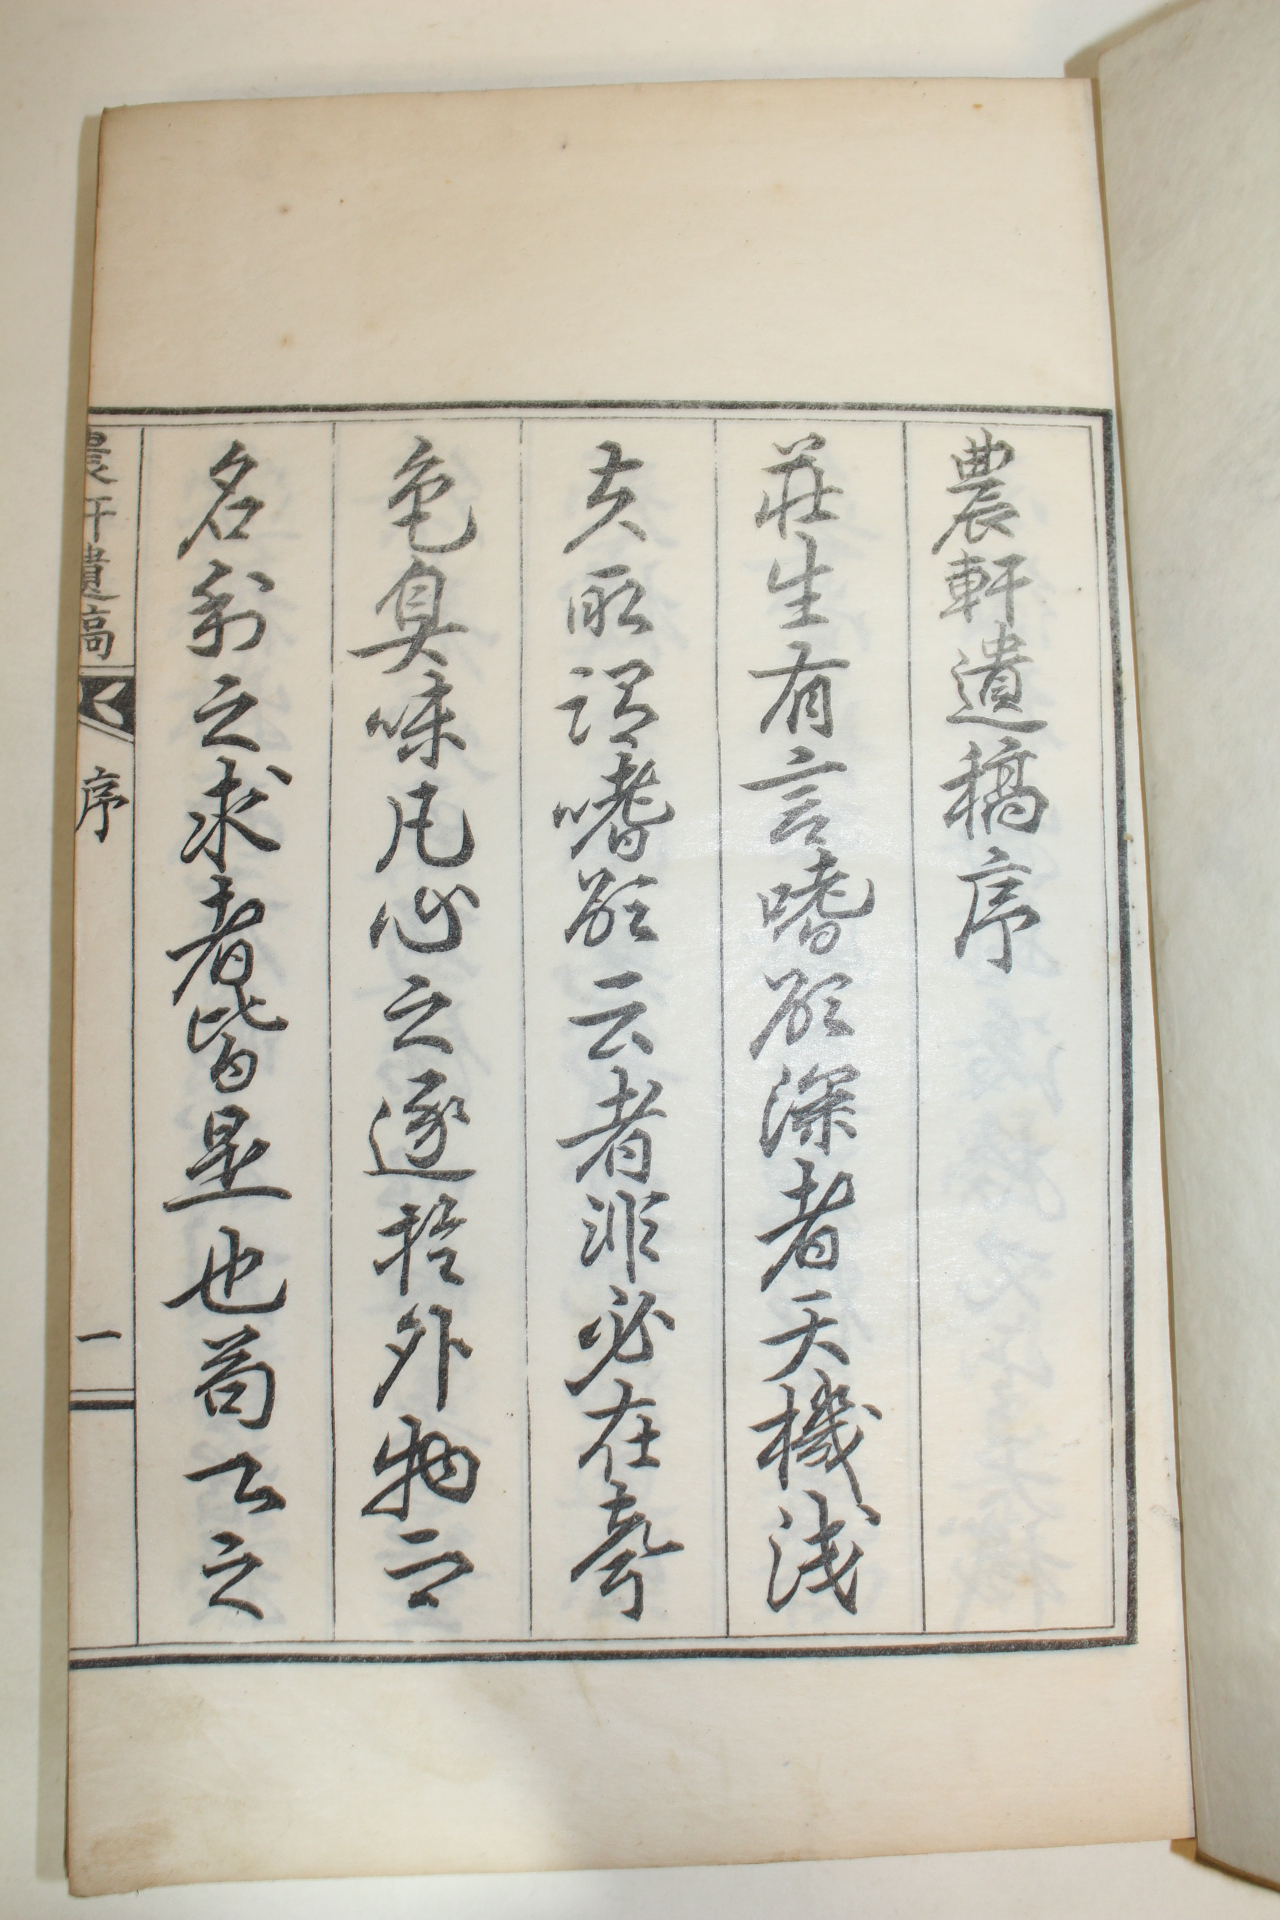 農軒遺稿序
莊生有言嗜欲深者天機淺
夫所謂嗜欲云者非必在聲
色臭味凡心之逐於外物而
名利之求者皆是也苟之
農軒遺稿 序 一